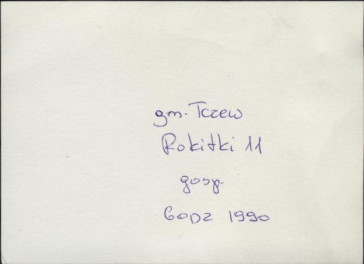 gm. Tczew
Rokitki 11
gosp.
GODZ 1990